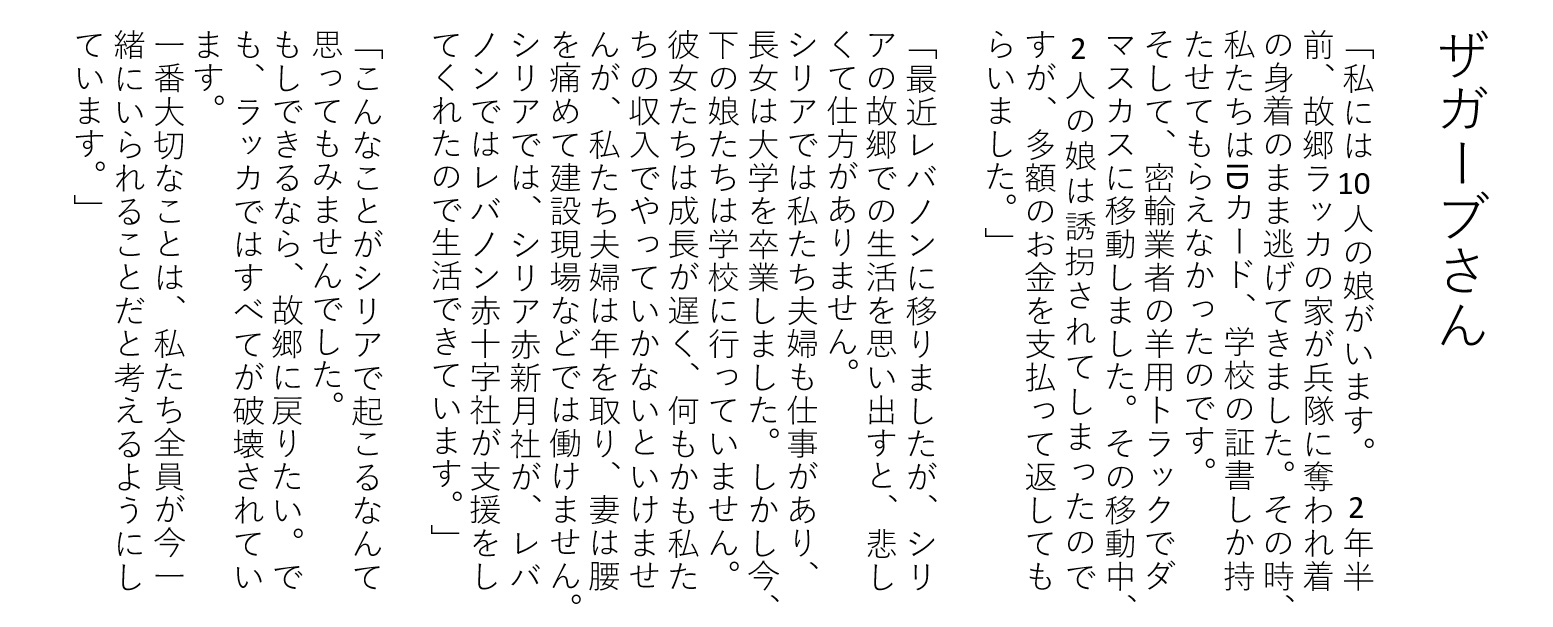 ザガーブさん
「私には10人の娘がいます。 2年半
前、故郷ラッカの家が兵隊に奪われ着
の身着のまま逃げてきました。その時、
私たちはIDカード、学校の証書しか持
たせてもらえなかったのです。
そして、密輸業者の羊用トラックでダ
マスカスに移動しました。その移動中、
2人の娘は誘拐されてしまったので
すが、多額のお金を支払って返しても
らいました。」
「最近レバノンに移りましたが、シリ
アの故郷での生活を思い出すと、悲し
くて仕方がありません。
シリアでは私たち夫婦も仕事があり、
長女は大学を卒業しました。しかし今、
下の娘たちは学校に行っていません。
彼女たちは成長が遅く、何もかも私た
ちの収入でやっていかないといけませ
んが、私たち夫婦は年を取り、妻は腰
を痛めて建設現場などでは働けません。
シリアでは、シリア赤新月社が、レバ
ノンではレバノン赤十字社が支援をし
てくれたので生活できています。」
「こんなことがシリアで起こるなんて
思ってもみませんでした。
もしできるなら、故郷に戻りたい。で
も、ラッカではすべてが破壊されてい
ます。
一番大切なことは、私たち全員が今一
緒にいられることだと考えるようにし
ています。」